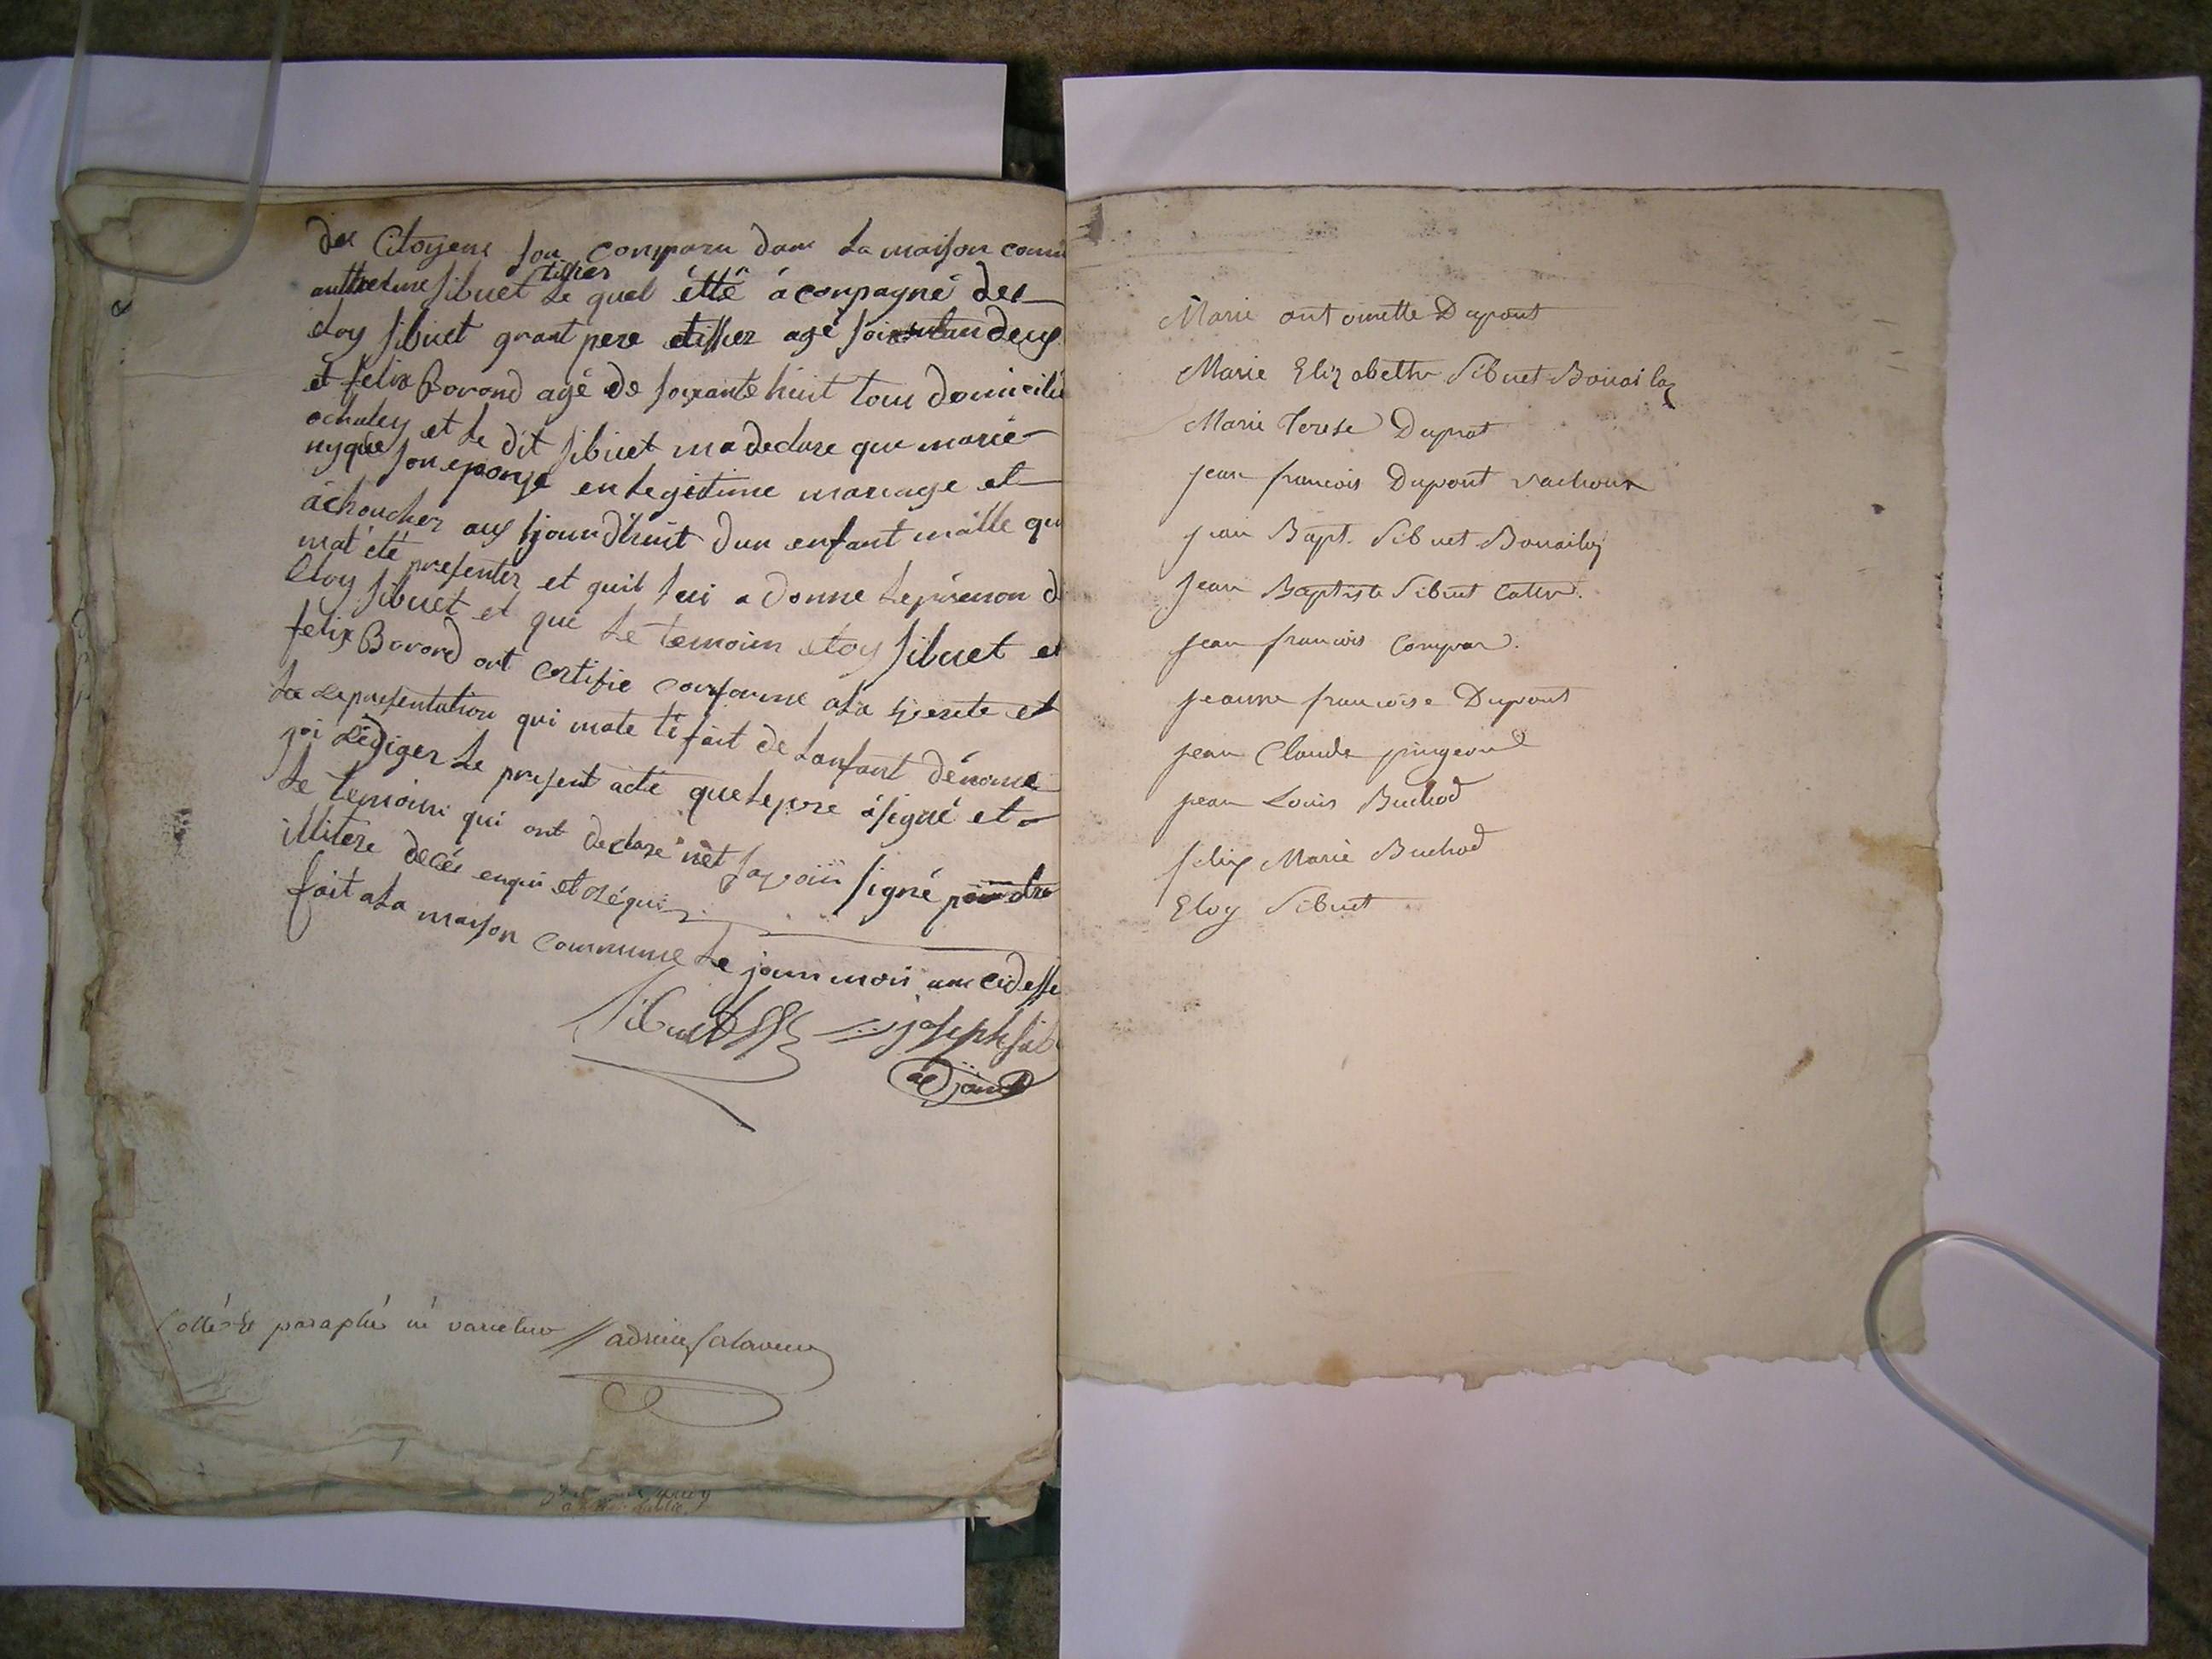 des Citoyens son comparu dans la maison comu
anthelme sibuet tissier le quel étté àconpagné des
eloy sibuet grant pere etisser agé soixantandeux
et felix Borond agé de soixante huit tous domicilié
ochaley et le dit sibuet ma declare que marie
nyque son eponse en legitime mariage et
àchoucher aus sjourdhuit dun enfant malle qu
mat été presenter et quil lui a donne le prénon d
Eloy sibuet et que le temoins eloy sibuet et
felix Borond ont certifie conforme ala verite et
la representation qui mate té fait de lanfant dénomé
jai rediger le present acte que le pere à signé et
le temoins qui ont declare net savoir signé
illitere decés enqui et réqui
fait ala maison commune le jour mois an cidesse
Sibuet joseph sib
adjoint
Cotté et paraphé né varietur
Marie antoinette Dupont
Marie Elizabeth Sibuet Bouailaz
Marie Terese Duprat
jean francois Dupont vachoux
jean Bapt. Sibuet Bouailaz
Jean Baptiste Sibuet Cath.
jean francois Compar.
jeanne francoise Dupont
jean Claude pingeon
jean Louis Buchod
felix Marie Buchod
Eloy Sibuet